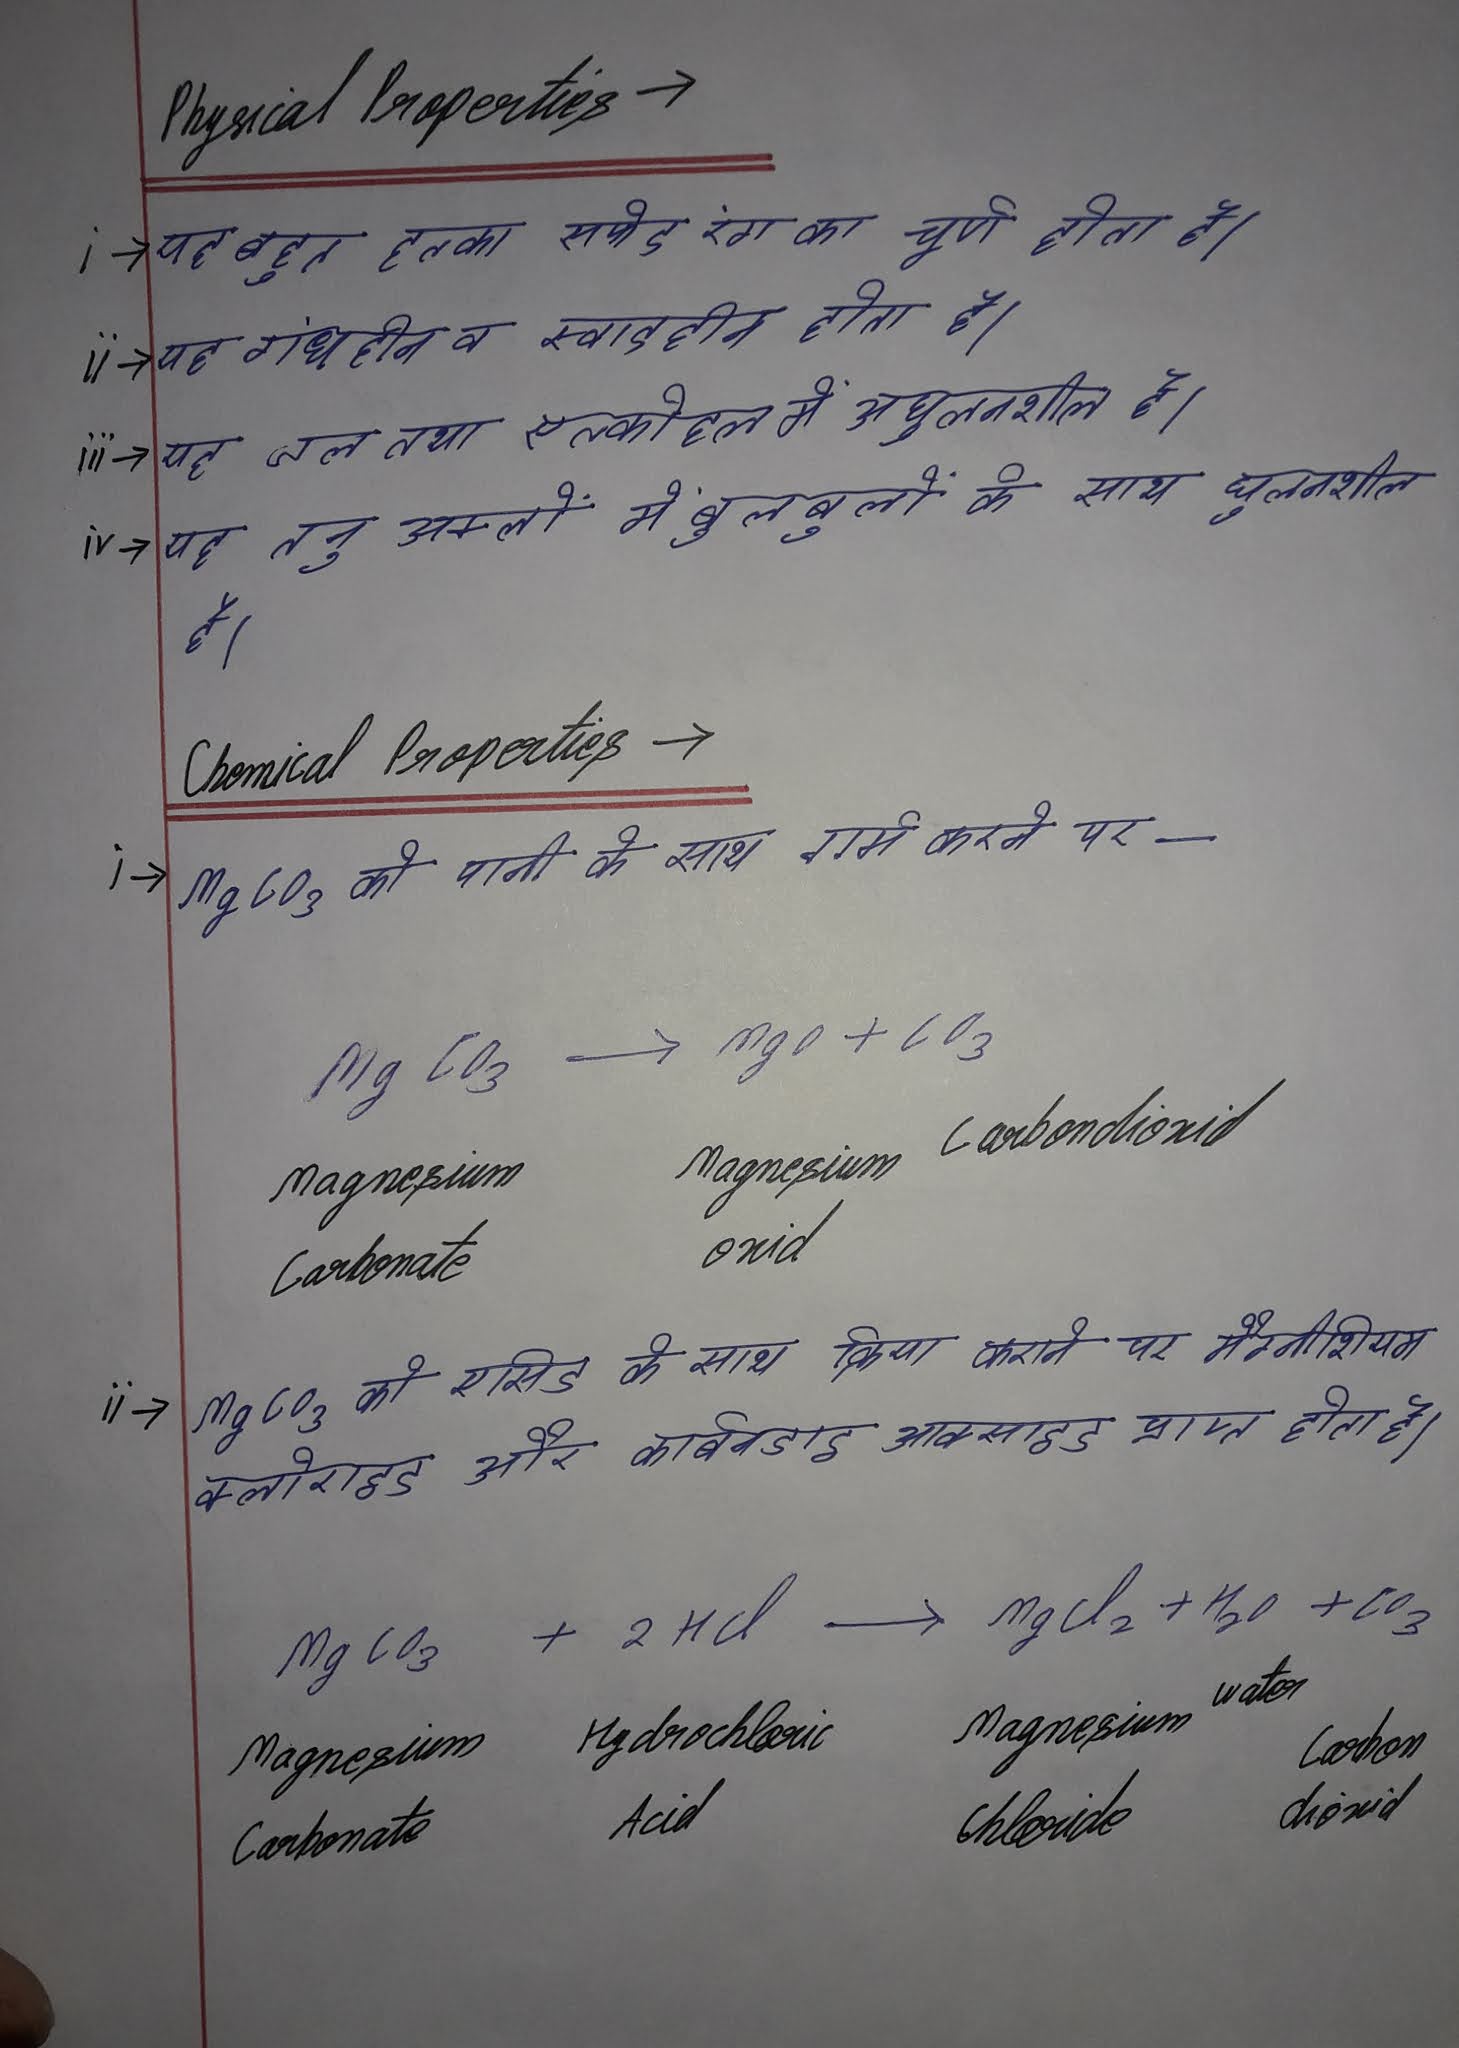 Physical Properties →
i → यह बहुत हल्का सफेद रंग का चूर्ण होता है।
ii → यह गंधहीन व स्वादहीन होता है।
iii → यह जल तथा एल्कोहल में अघुलनशील है।
iv → यह तनु अम्लों में बुलबुलों के साथ घुलनशील
है।
Chemical Properties →
i → MgCO3 को पानी के साथ गर्म करने पर —
MgCO3 → MgO + CO3
Magnesium Magnesium Carbondioxid
Carbonate oxid
ii → MgCO3 को एसिड के साथ क्रिया कराने पर मैग्नीशियम
क्लोराइड और कार्बनडाइ आक्साइड प्राप्त होता है।
MgCO3 + 2HCl → MgCl2 + H2O + CO3
Magnesium Hydrochloric Magnesium water Carbon
Carbonate Acid Chloride dioxid